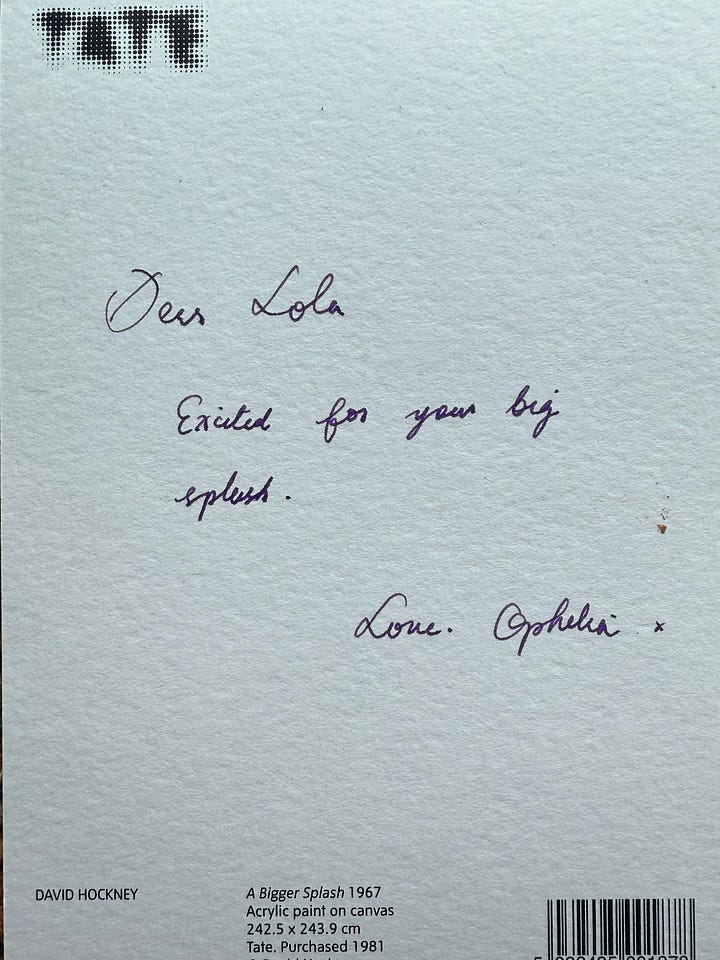 TATE
Dear Lola
Excited for your big
splash.
Love. Ophelia x
DAVID HOCKNEY
A Bigger Splash 1967
Acrylic paint on canvas
242.5 x 243.9 cm
Tate. Purchased 1981